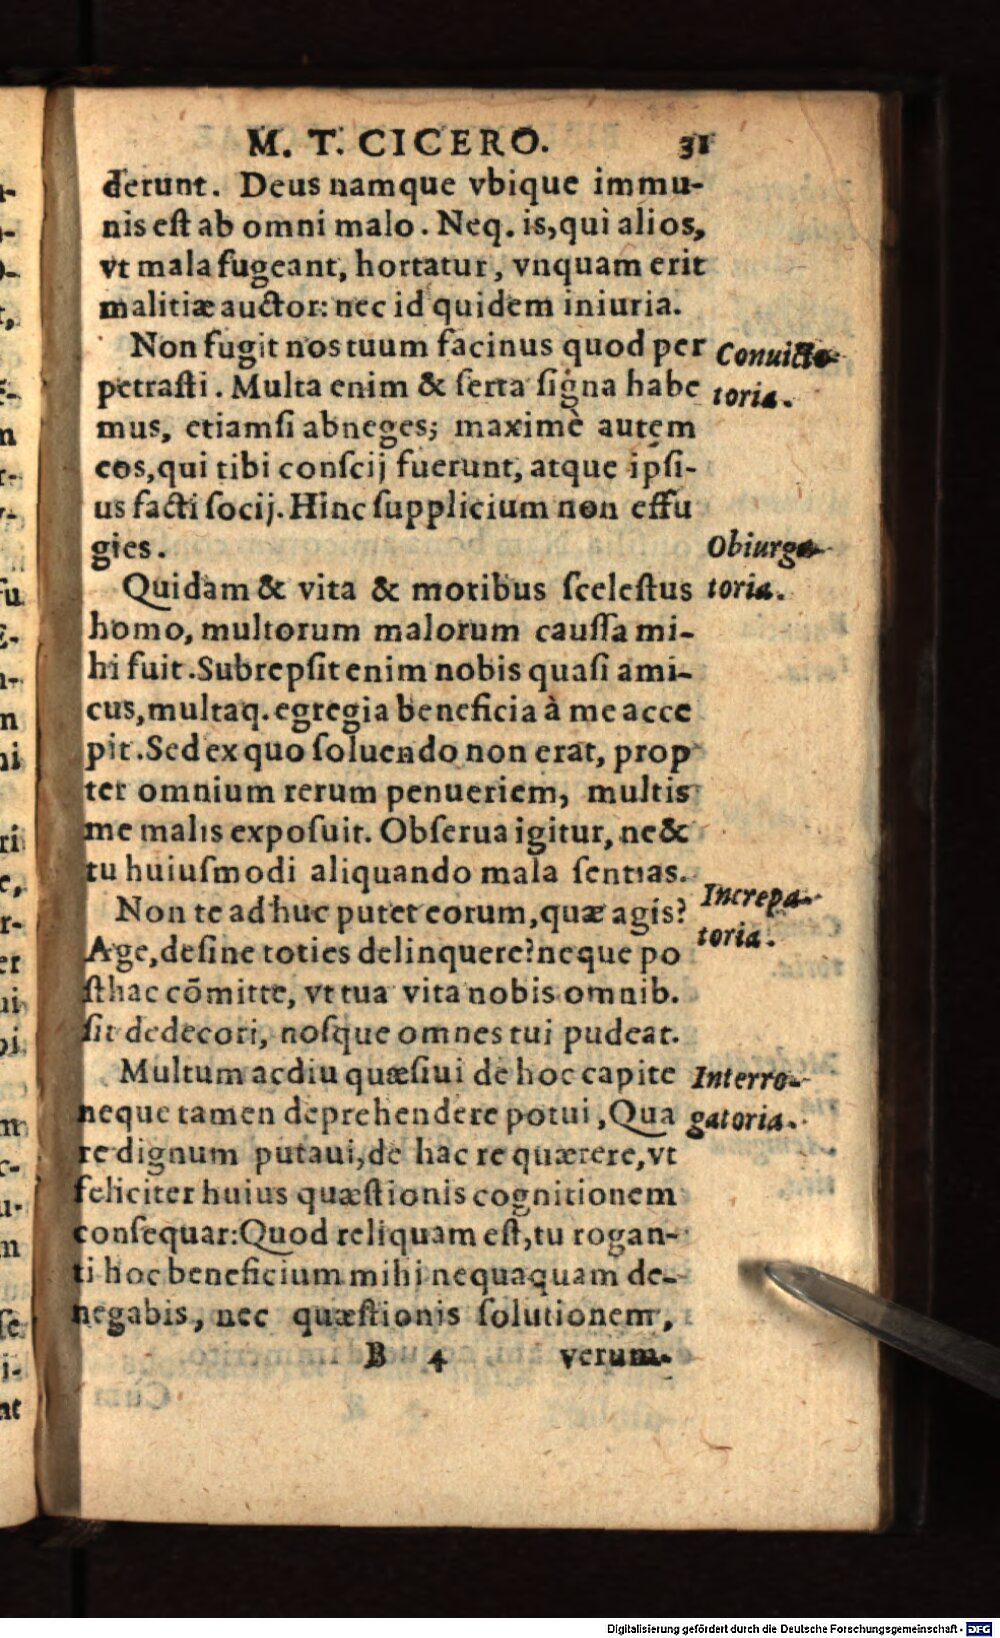 M. T. CICERO. 31
derunt. Deus namque vbique immu-
nis est ab omni malo. Neq. is, qui alios,
vt mala fugeant, hortatur, vnquam erit
malitiæ auctor: nec id quidem iniuria.
Non fugit nos tuum facinus quod per
Conuicto-
petrasti. Multa enim & serta signa habe
toria.
mus, etiamsi abneges; maximè autem
eos, qui tibi conscij fuerunt, atque ipsi-
us facti socij. Hinc supplicium non effu
gies.
Obiurga-
Quidam & vita & moribus scelestus
toria.
homo, multorum malorum caussa mi-
hi fuit. Subrepsit enim nobis quasi ami-
cus, multaq. egregia beneficia à me acce
pit. Sed ex quo soluendo non erat, prop
ter omnium rerum penueriem, multis
me malis exposuit. Obserua igitur, ne &
tu huiusmodi aliquando mala sentias.
Non te ad huc putet eorum, quæ agis?
Increpa-
Age, desine toties delinquere? neque po
toria.
sthac cõmitte, vt tua vita nobis omnib.
sit dedecori, nosque omnes tui pudeat.
Multum ac diu quæsiui de hoc capite
Interro-
neque tamen deprehendere potui, Qua
gatoria.
re dignum putaui, de hac re quærere, vt
feliciter huius quæstionis cognitionem
consequar: Quod reliquam est, tu rogan-
ti hoc beneficium mihi nequaquam de-
negabis, nec quæstionis solutionem,
B 4 verum-
Digitalisierung gefördert durch die Deutsche Forschungsgemeinschaft - DFG